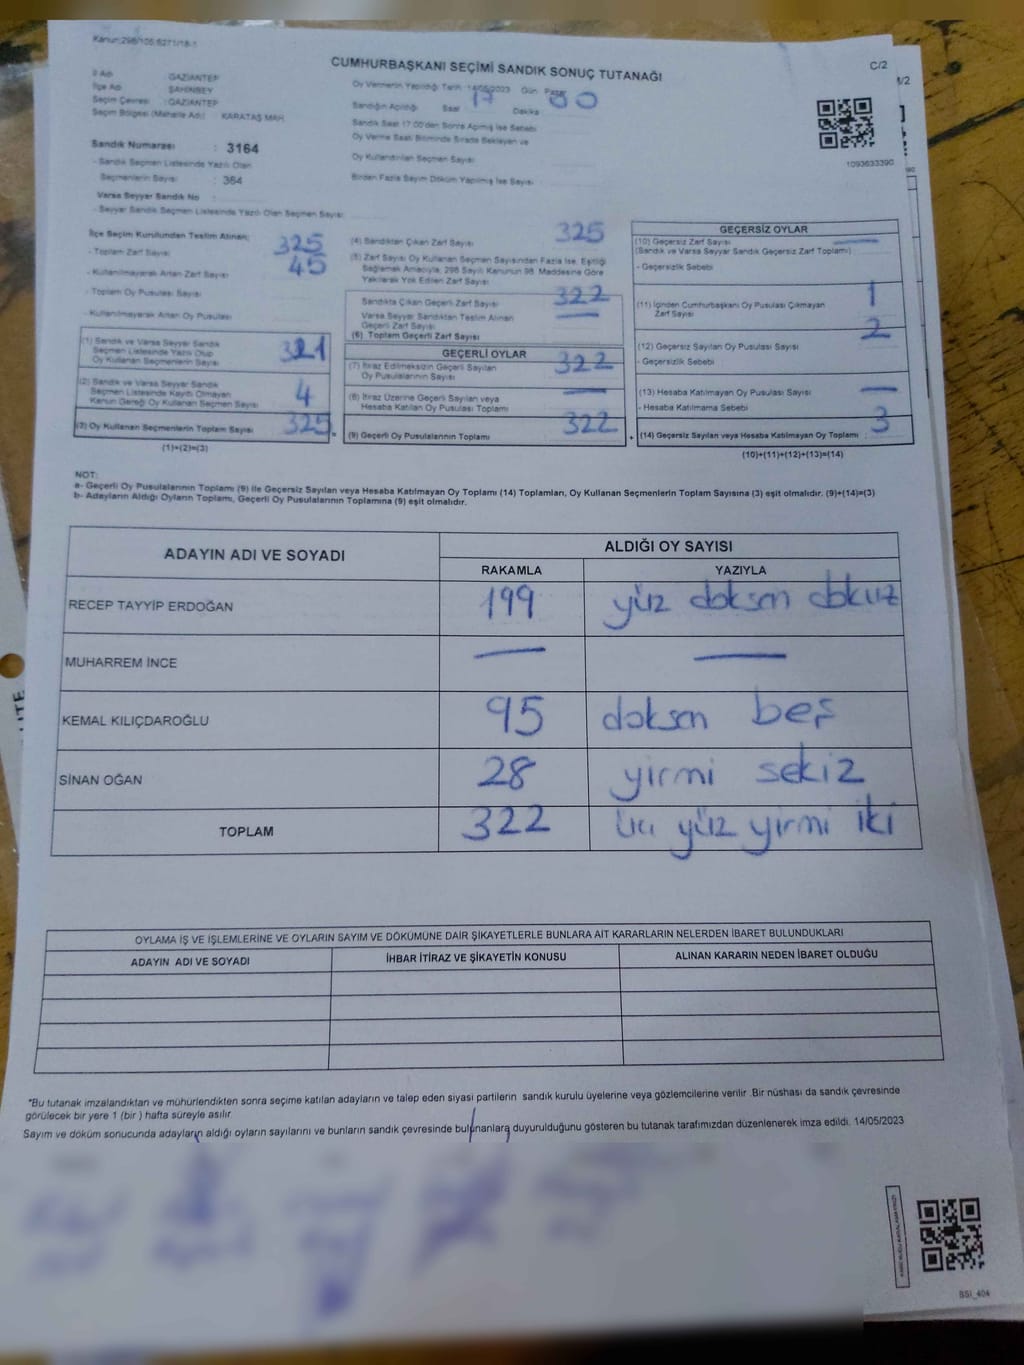 Kanun:298/105;6271/18-1
CUMHURBAŞKANI SEÇİMİ SANDIK SONUÇ TUTANAĞI
C/2
İl Adı : GAZİANTEP
İlçe Adı : ŞAHİNBEY
Seçim Çevresi : GAZİANTEP
Seçim Bölgesi (Mahalle Adı) : KARATAŞ MAH
Sandık Numarası : 3164
- Sandık Seçmen Listesinde Yazılı Olan
Seçmenlerin Sayısı : 364
Varsa Seyyar Sandık No :
- Seyyar Sandık Seçmen Listesinde Yazılı Olan Seçmen Sayısı:
Oy Vermenin Yapıldığı Tarih :14/05/2023 Gün : Pazar
Sandığın Açıldığı Saat 17 Dakika 00
Sandık Saat 17.00'den Sonra Açılmış İse Sebebi
Oy Verme Saati Bitiminde Sırada Bekleyen ve
Oy Kullandırılan Seçmen Sayısı
Birden Fazla Sayım Döküm Yapılmış İse Sayısı
1093633390
İlçe Seçim Kurulundan Teslim Alınan;
- Toplam Zarf Sayısı 325
- Kullanılmayarak Artan Zarf Sayısı 45
- Toplam Oy Pusulası Sayısı
- Kullanılmayarak Artan Oy Pusulası
(1) Sandık ve Varsa Seyyar Sandık
Seçmen Listesinde Yazılı Olup
Oy Kullanan Seçmenlerin Sayısı 321
(2) Sandık ve Varsa Seyyar Sandık
Seçmen Listesinde Kayıtlı Olmayan
Kanun Gereği Oy Kullanan Seçmen Sayısı 4
(3) Oy Kullanan Seçmenlerin Toplam Sayısı 325
(1)+(2)=(3)
(4) Sandıktan Çıkan Zarf Sayısı 325
(5) Zarf Sayısı Oy Kullanan Seçmen Sayısından Fazla İse, Eşitliği
Sağlamak Amacıyla, 298 Sayılı Kanunun 98. Maddesine Göre
Yakılarak Yok Edilen Zarf Sayısı
Sandıkta Çıkan Geçerli Zarf Sayısı 322
Varsa Seyyar Sandıktan Teslim Alınan
Geçerli Zarf Sayısı —
(6) Toplam Geçerli Zarf Sayısı
GEÇERLİ OYLAR
(7) İtiraz Edilmeksizin Geçerli Sayılan
Oy Pusulalarının Sayısı 322
(8) İtiraz Üzerine Geçerli Sayılan veya
Hesaba Katılan Oy Pusulası Toplamı —
(9) Geçerli Oy Pusulalarının Toplamı 322
GEÇERSİZ OYLAR
(10) Geçersiz Zarf Sayısı —
(Sandık ve Varsa Seyyar Sandık Geçersiz Zarf Toplamı)
- Geçersizlik Sebebi
(11) İçinden Cumhurbaşkanı Oy Pusulası Çıkmayan
Zarf Sayısı 1
(12) Geçersiz Sayılan Oy Pusulası Sayısı 2
- Geçersizlik Sebebi
(13) Hesaba Katılmayan Oy Pusulası Sayısı —
- Hesaba Katılmama Sebebi
(14) Geçersiz Sayılan veya Hesaba Katılmayan Oy Toplamı 3
(10)+(11)+(12)+(13)=(14)
NOT:
a- Geçerli Oy Pusulalarının Toplamı (9) ile Geçersiz Sayılan veya Hesaba Katılmayan Oy Toplamı (14) Toplamları, Oy Kullanan Seçmenlerin Toplam Sayısına (3) eşit olmalıdır. (9)+(14)=(3)
b- Adayların Aldığı Oyların Toplamı, Geçerli Oy Pusulalarının Toplamına (9) eşit olmalıdır.
ADAYIN ADI VE SOYADI
ALDIĞI OY SAYISI
RAKAMLA YAZIYLA
RECEP TAYYİP ERDOĞAN 199 yüz doksan dokuz
MUHARREM İNCE — —
KEMAL KILIÇDAROĞLU 95 doksan beş
SİNAN OĞAN 28 yirmi sekiz
TOPLAM 322 üç yüz yirmi iki
OYLAMA İŞ VE İŞLEMLERİNE VE OYLARIN SAYIM VE DÖKÜMÜNE DAİR ŞİKAYETLERLE BUNLARA AİT KARARLARIN NELERDEN İBARET BULUNDUKLARI
ADAYIN ADI VE SOYADI İHBAR İTİRAZ VE ŞİKAYETİN KONUSU ALINAN KARARIN NEDEN İBARET OLDUĞU
*Bu tutanak imzalandıktan ve mühürlendikten sonra seçime katılan adayların ve talep eden siyasi partilerin sandık kurulu üyelerine veya gözlemcilerine verilir .Bir nüshası da sandık çevresinde
görülecek bir yere 1 (bir ) hafta süreyle asılır.
Sayım ve döküm sonucunda adayların aldığı oyların sayılarını ve bunların sandık çevresinde bulunanlara duyurulduğunu gösteren bu tutanak tarafımızdan düzenlenerek imza edildi. 14/05/2023
BSI_404